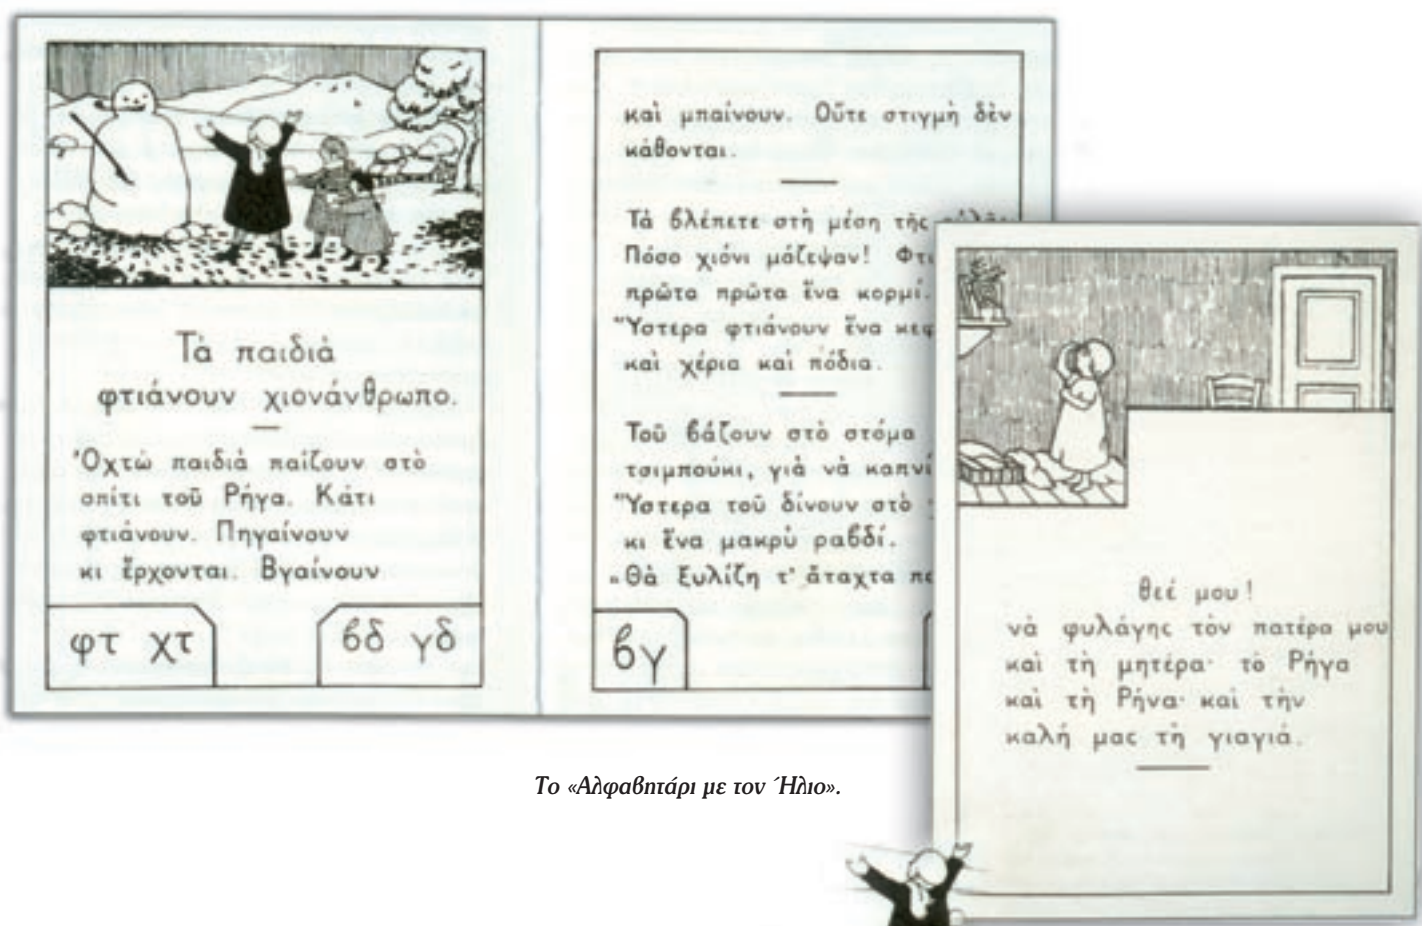 Τὰ παιδιὰ
φτιάνουν χιονάνθρωπο.
Ὀχτὼ παιδιὰ παίζουν στὸ
σπίτι τοῦ Ρήγα. Κάτι
φτιάνουν. Πηγαίνουν
κι ἔρχονται. Βγαίνουν
φτ χτ
βδ γδ
καὶ μπαίνουν. Οὔτε στιγμὴ δὲν
κάθονται.
Τὰ βλέπετε στὴ μέση τῆς
Πόσο χιόνι μάζεψαν!
πρῶτα πρῶτα ἕνα κορμί.
Ὕστερα φτιάνουν ἕνα
καὶ χέρια καὶ πόδια.
Τοῦ βάζουν στὸ στόμα
τσιμπούκι, γιὰ νὰ
Ὕστερα τοῦ δίνουν στὸ
κι ἕνα μακρὺ ραβδί.
«Θὰ ξυλίζη τ' ἄταχτα
βγ
θεέ μου!
νὰ φυλάγης τὸν πατέρα μου
καὶ τὴ μητέρα· τὸ Ρήγα
καὶ τὴ Ρήνα· καὶ τὴν
καλή μας τὴ γιαγιά.
Το «Αλφαβητάρι με τον Ήλιο».